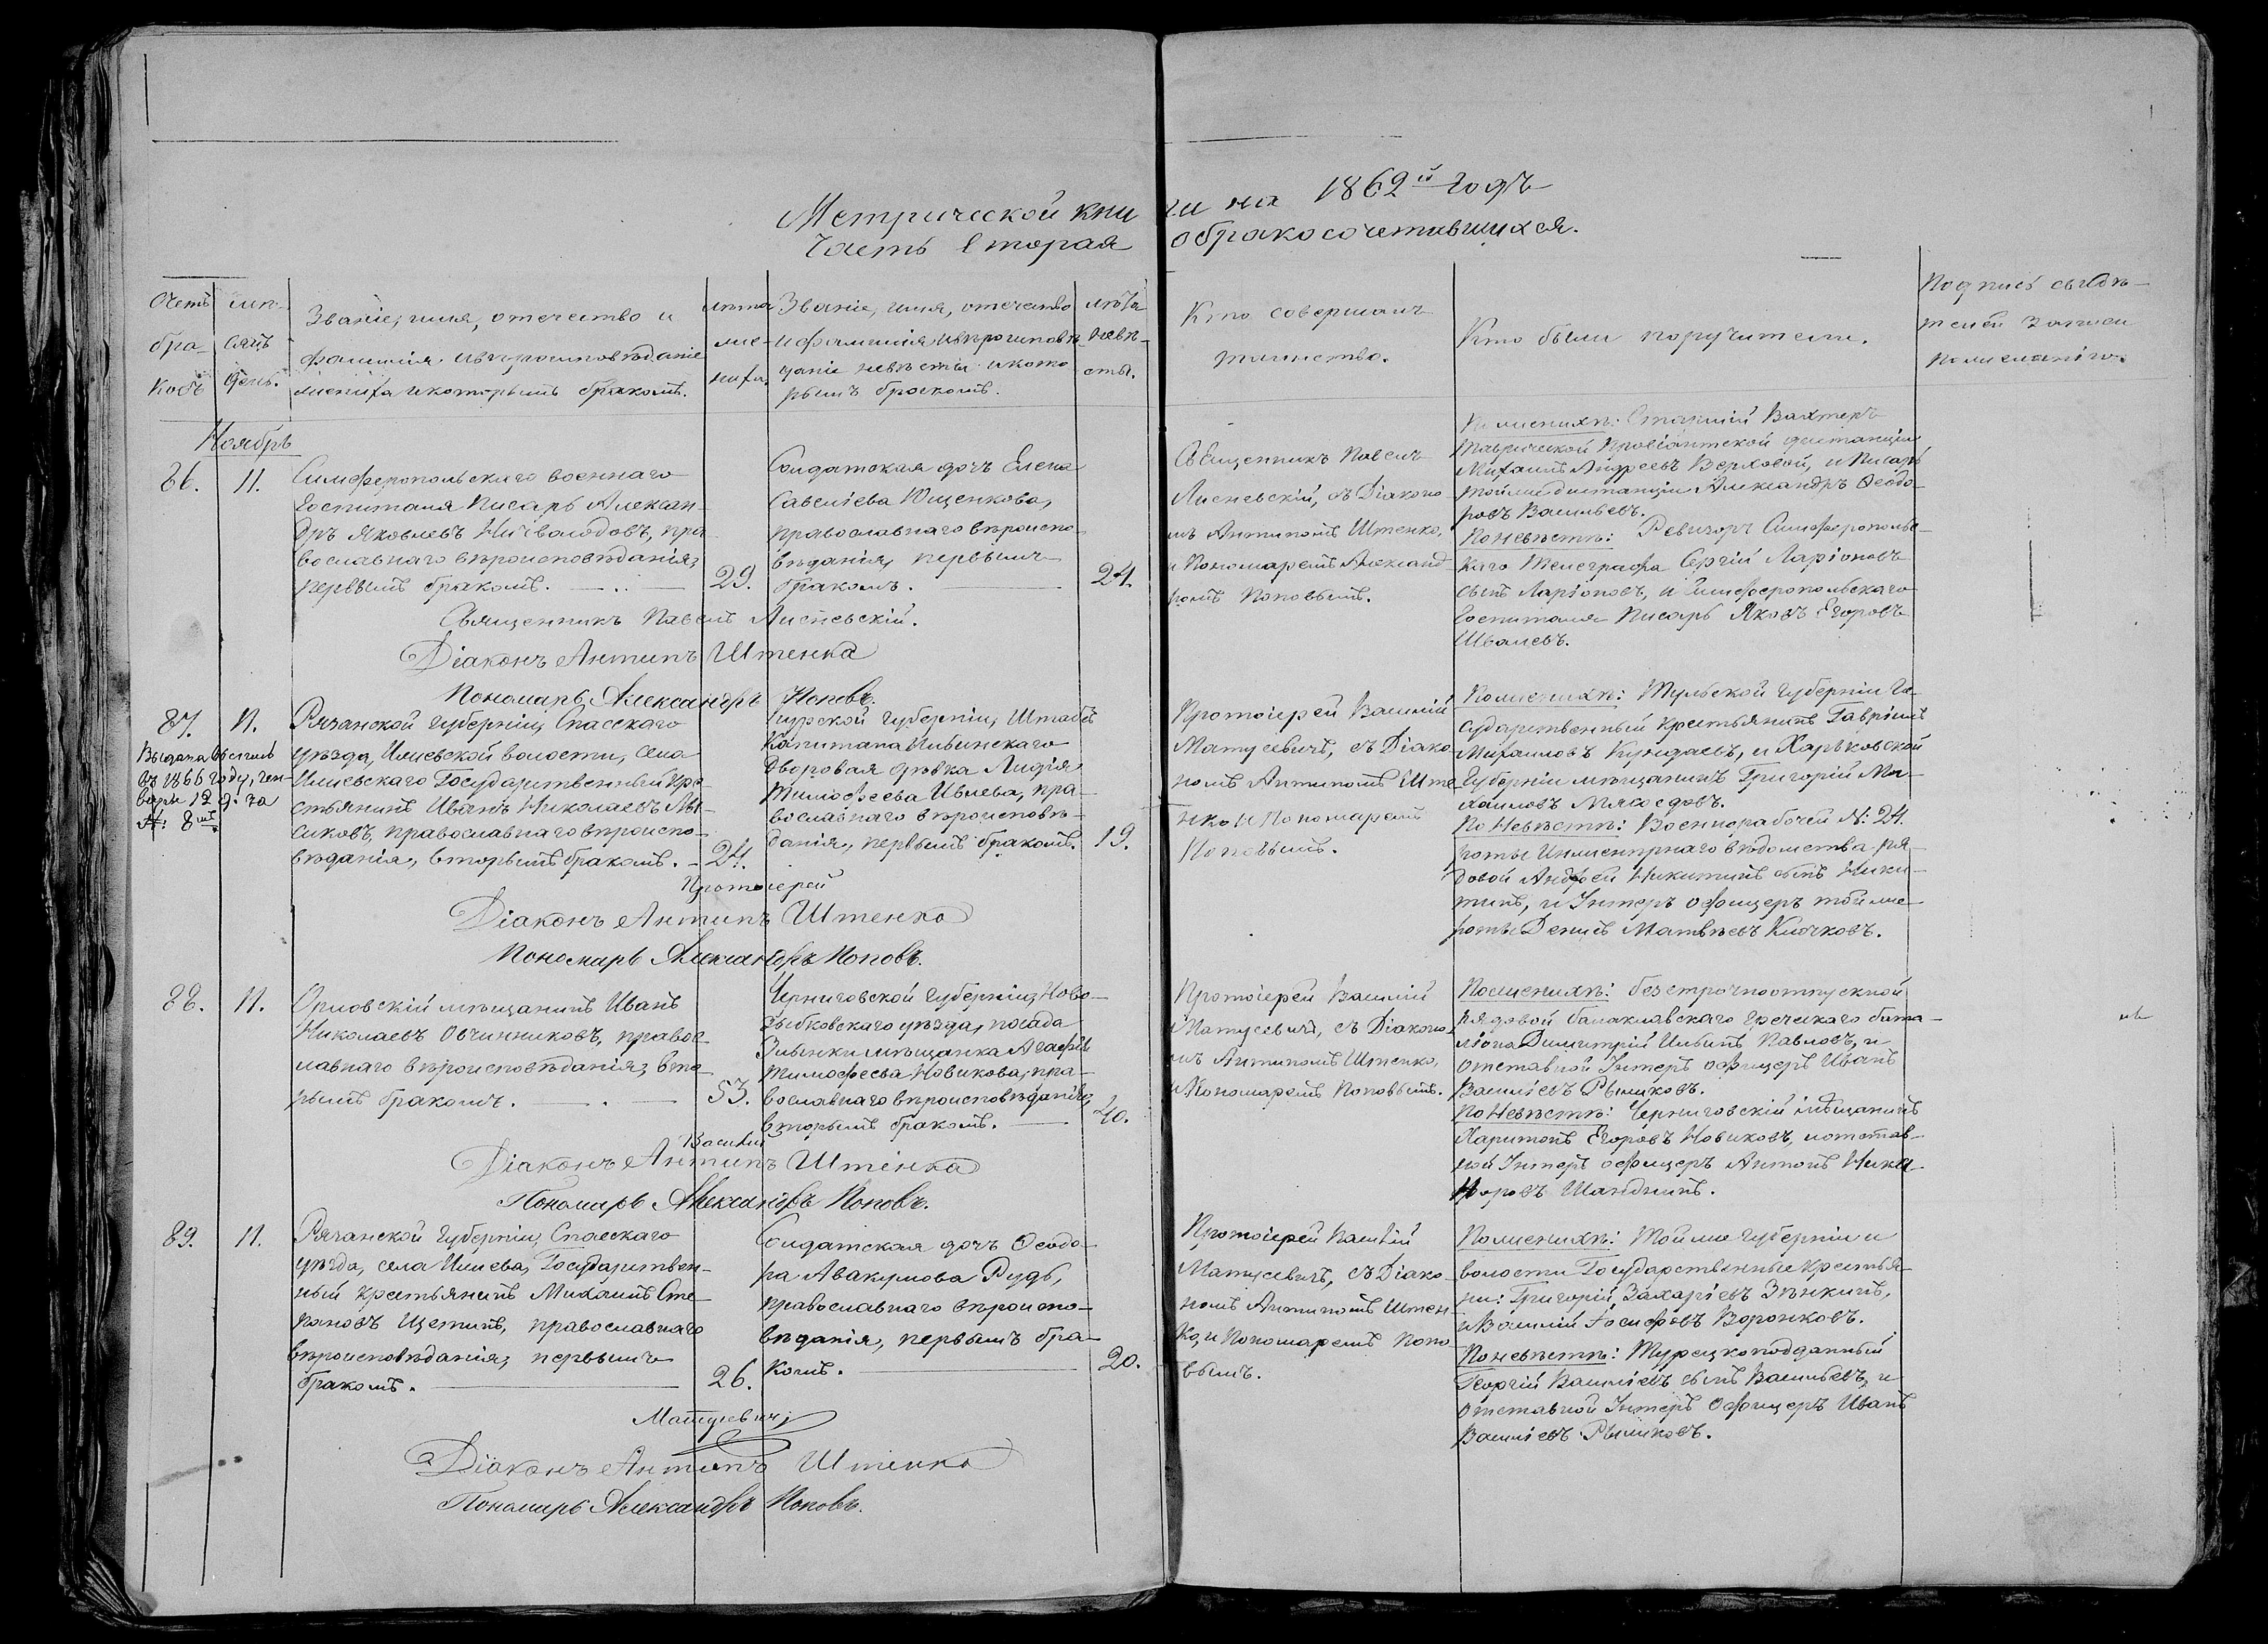 Метрической кни
ги на 1862й годъ
Часть вторая
о бракосочетавшихся.
Счетъ
бра-
ковъ
мѣ-
сяцъ
день.
Званіе, имя, отечество и
фамилія и вѣроисповѣданіе
жениха и которымъ бракомъ.
лѣта
же-
ниха.
Званіе, имя, отечество
и фамилія и вѣроисповѣ-
даніе невѣсты и кото
рымъ бракомъ.
лѣта
невѣ-
сты.
Кто совершалъ
таинство.
Кто были поручители.
Подпись свидѣ-
телей записи
по желанію.
Ноябрь
86.
11.
Симферопольскаго военнаго
Госпиталя Писарь Алексан-
дръ Яковлевъ Ничволодовъ, пра
вославнаго вѣроисповѣданія,
первымъ бракомъ.
29.
Солдатская дочь Елена
Савеліева Ющенкова,
православнаго вѣроиспо-
вѣданія, первымъ
бракомъ.
24.
Священникъ Павелъ
Лисневскій, съ Діаконо
мъ Антипомъ Штенко,
и Пономаремъ Александ
ромъ Поповымъ.
По женихѣ: Старшій Вахтеръ
Таврической Провіантской дистанціи
Михаилъ Андреевъ Верховой, и Писарь
той же дистанціи Александръ Ѳеодо-
ровъ Васильевъ.
По невѣстѣ: Ревизоръ Симферопольс-
каго Телеграфа Сергій Ларіоновъ
сынъ Ларіоновъ, и Симферопольскаго
Госпиталя Писарь Яковъ Егоровъ
Шваневъ.
Священникъ Павелъ Лисневскій.
Діаконъ Антипъ Штенка
Пономарь Александръ Поповъ.
87.
11.
Выдана
въ 1866 году, Ген-
варя 12 д. за
№: 8мъ.
Рязанской Губерніи, Спасскаго
уѣзда, Ижевской волости, села
Ижевскаго Государственный кре-
стьянинъ Иванъ Николаевъ
православнаго вѣроиспо-
вѣданія, вторымъ бракомъ.
24.
Курской Губерніи, Штабсъ
Капитана
дворовая дѣвка Лидія
Тимофеева Ивлева, пра-
вославнаго вѣроисповѣ-
данія, первымъ бракомъ.
19.
Протоіерей Василій
Матусевичъ, съ Діако
номъ Антипомъ Ште
нко и Пономаремъ
Поповымъ.
По женихѣ: Тульской Губерніи Го-
сударственный крестьянинъ Гавріилъ
Михаиловъ и Харьковской
Губерніи мѣщанинъ Григорій Ми-
хаиловъ Мясоедовъ.
По невѣстѣ: Военнорабочей №: 24.
роты Инженернаго вѣдомства ря-
довой Андрей Никитинъ сынъ Ники-
тинъ, и Унтеръ офицеръ той же
роты Денисъ Матвѣевъ Клочковъ.
Протоіерей
Діаконъ Антипъ Штенко
Пономарь Александръ Поповъ.
88.
11.
Орловскій мѣщанинъ Иванъ
Николаевъ Овчинниковъ, правос-
лавнаго вѣроисповѣданія, вто-
рымъ бракомъ.
53.
Черниговской Губерніи, Ново-
зыбковскаго уѣзда, посада
Злынки мѣщанка Агафія
Тимофеева Новикова, пра-
вославнаго вѣроисповѣданія,
вторымъ бракомъ.
40.
Протоіерей Василій
Матусевичъ, съ Діаконо
мъ Антипомъ Штенко,
и Пономаремъ Поповымъ.
По женихѣ: безсрочноотпускной
рядовой балаклавскаго греческаго бата-
ліона Димитрій Ильинъ Павловъ, и
отставной Унтеръ офицеръ Иванъ
Василіевъ Рыжковъ.
По невѣстѣ: Черниговскій мѣщанинъ
Харитонъ Егоровъ Новиковъ, и отстав-
ной Унтеръ офицеръ Антонъ Ника-
норовъ Шандинъ.
Василій
Діаконъ Антипъ Штенка
Пономарь Александръ Поповъ.
89.
11.
Рязанской Губерніи, Спасскаго
уѣзда, села Ижева, Государствен-
ный крестьянинъ Михаилъ Сте
пановъ Щетинъ, православнаго
вѣроисповѣданія, первымъ
бракомъ.
26.
Солдатская дочь Ѳеодо-
ра Авакумова Рудь,
православнаго вѣроиспо-
вѣданія, первымъ бра-
комъ.
20.
Протоіерей Василій
Матусевичъ, съ Діако-
номъ Антипомъ Штен
ко, и Пономаремъ Попо
вымъ.
По женихѣ: Той же Губерніи и
волости Государственные крестья-
не: Григорій Захаріевъ Зѣнкинъ,
и Василій Іосифовъ Воронковъ.
По невѣстѣ: Турецкоподданный
Георгій Василіевъ сынъ Васильевъ, и
отставной Унтеръ офицеръ Иванъ
Василіевъ Рыжковъ.
Матусевичъ
Діаконъ Антипъ Штенко
Пономарь Александръ Поповъ.